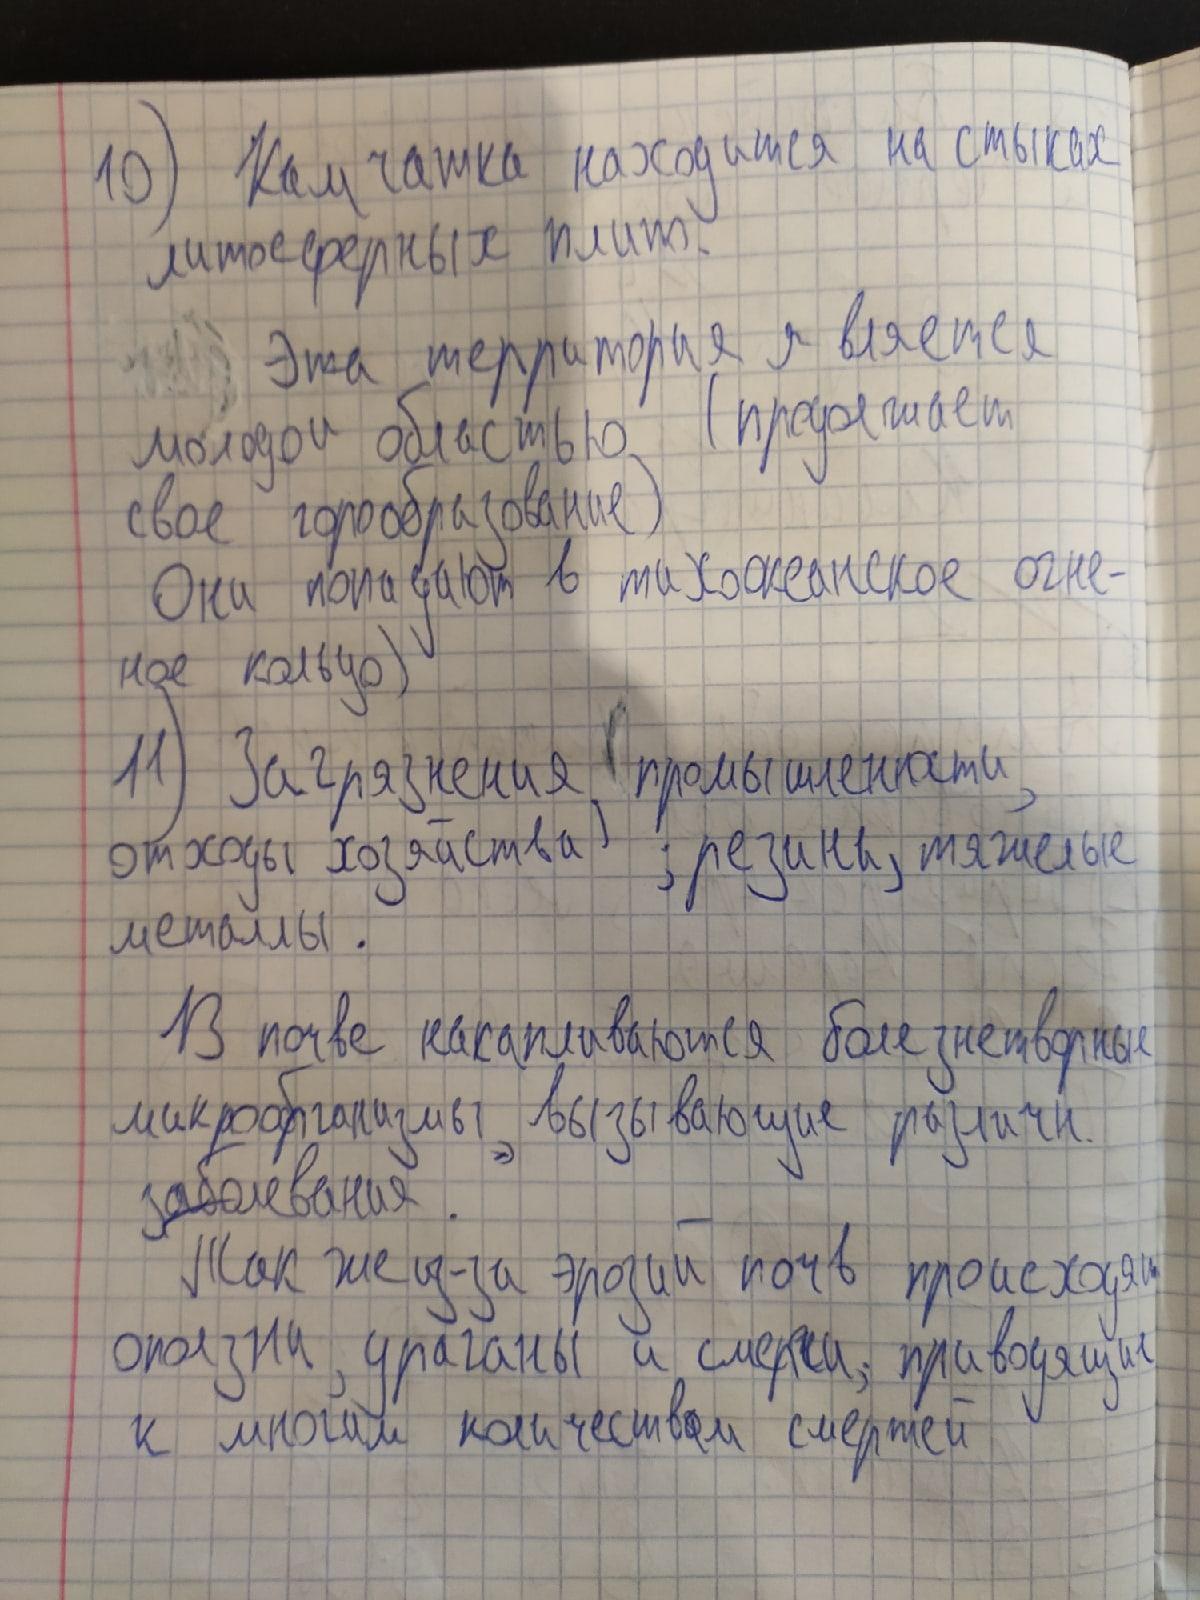 10) Камчатка находится на стыках
литосферных плит.
Эта территория является
молодой областью (продолжает
свое горообразование)
Они попадают в тихоокеанское огне-
ное кольцо)
11) Загрязнения (промышленности,
отходы хозяйства) ; резины, тяжелые
металлы.
В почве накапливаются болезнетворные
микроорганизмы, вызывающие различн.
заболевания.
Так же из-за эрозий почв происходят
оползни, ураганы и смерчи, приводящие
к многим количествам смертей